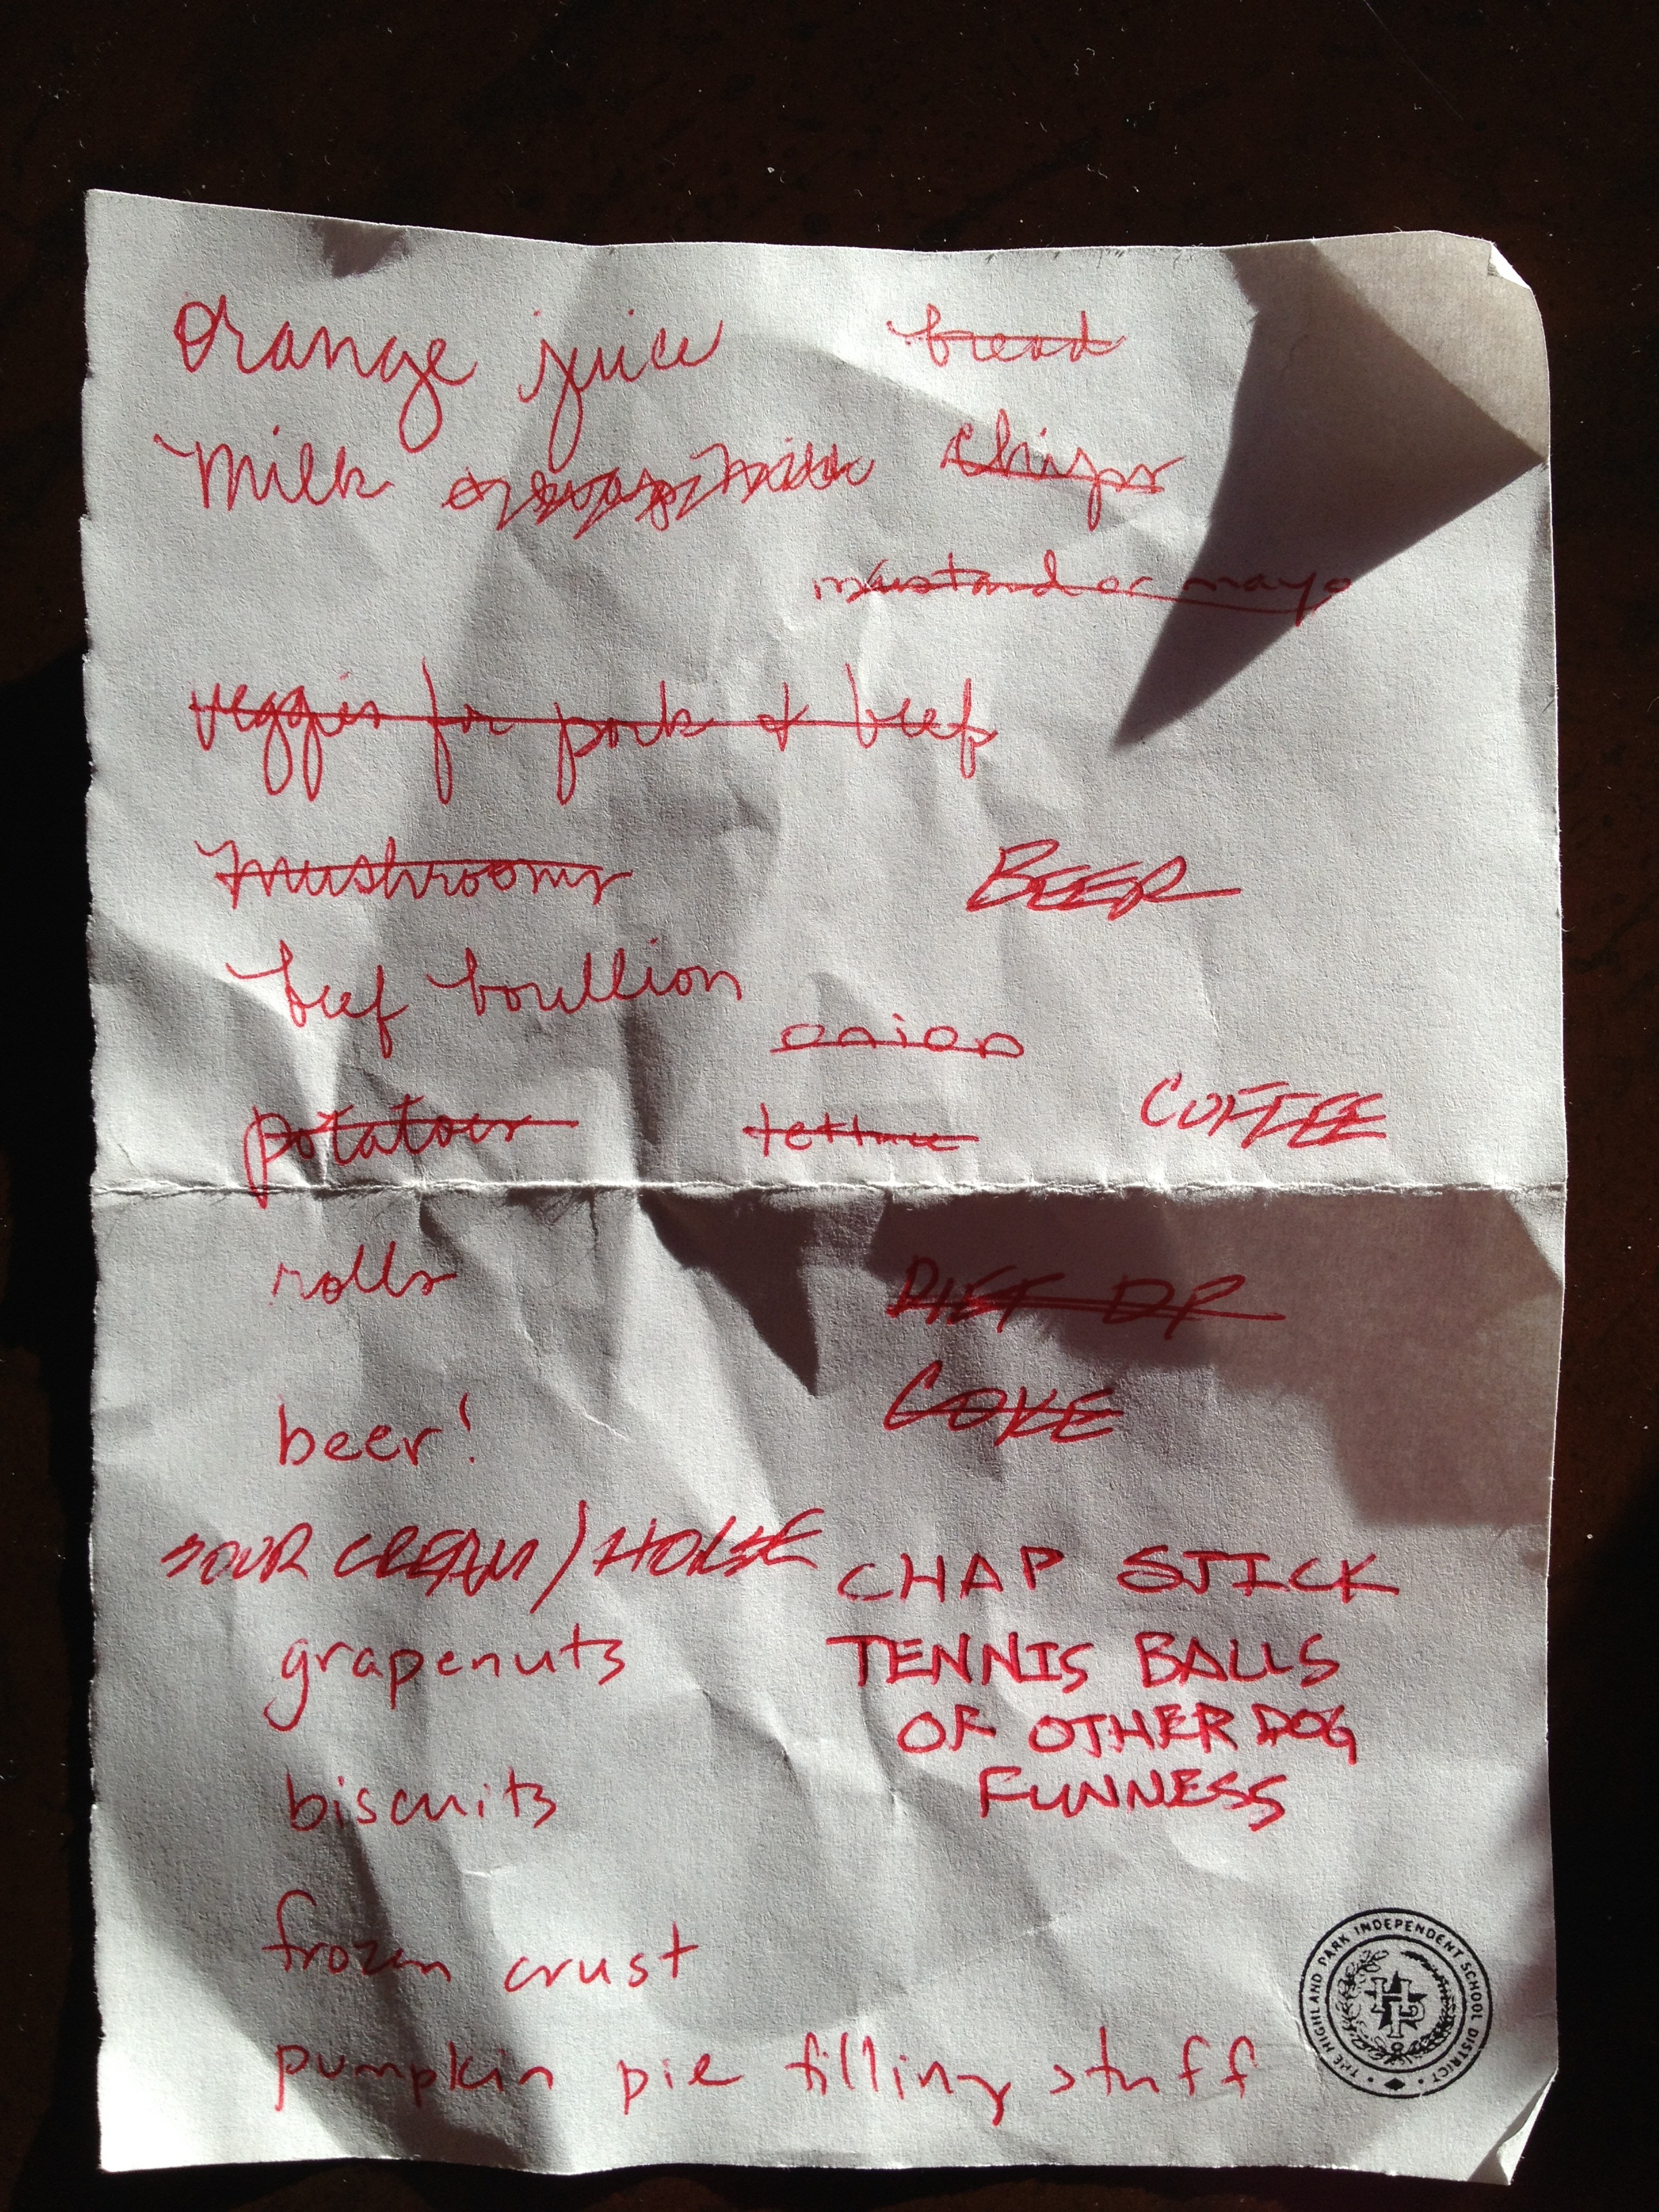 orange juice bread
milk chips
mustard or mayo
veggies for pork & beef
mushrooms BEER
beef boullion
onion
potatoes lettuce COFFEE
rolls DIET DP
COKE
beer!
SOUR CREAM / HORSE
CHAP STICK
grapenuts
TENNIS BALLS
OF OTHER DOG
FUNNESS
biscuits
frozen crust
pumpkin pie filling stuff
THE HIGHLAND PARK INDEPENDENT SCHOOL DISTRICT
HP